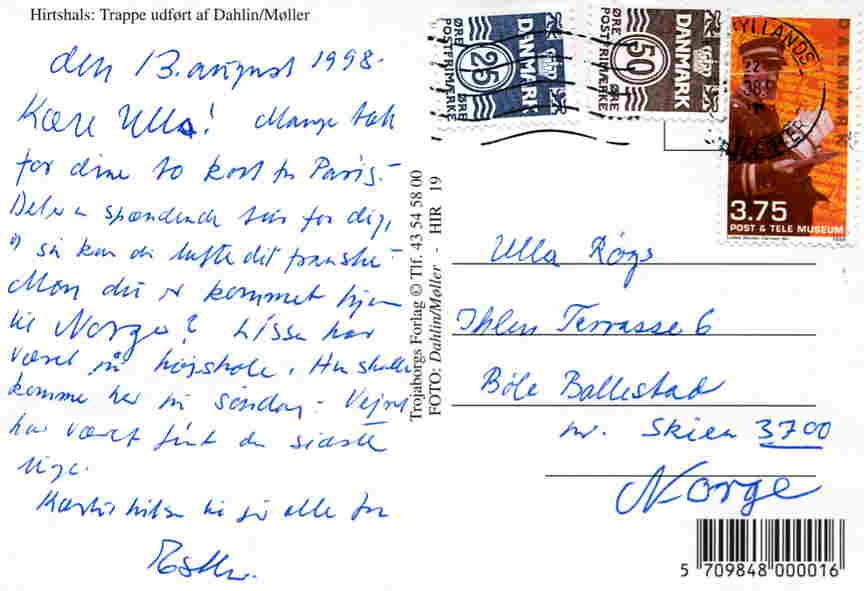 Hirtshals: Trappe udført af Dahlin/Møller
den 13. august 1998.
Kære Ulla! Mange tak
for dine to kort fra Paris.
Det er en spændende tur for dig,
og så kan du lufte dit franske.
Mon du er kommet hjem
til Norge? Lissa har
været på højskole. Hun skulle
komme her på søndag. Vejret
har været fint den sidste
uge.
Kærlig hilsen til jer alle fra
Trojaborgs Forlag © Tlf. 43 54 58 00
FOTO: Dahlin/Møller - HIR 19
DANMARK
25 ØRE
POSTFRIMÆRKE
DANMARK
50 ØRE
POSTFRIMÆRKE
DANMARK
3.75
POST & TELE MUSEUM
Ulla Røgs
Ihlen Terrasse 6
Böle Ballestad
nr. Skien 3700
Norge
5 709848 000016